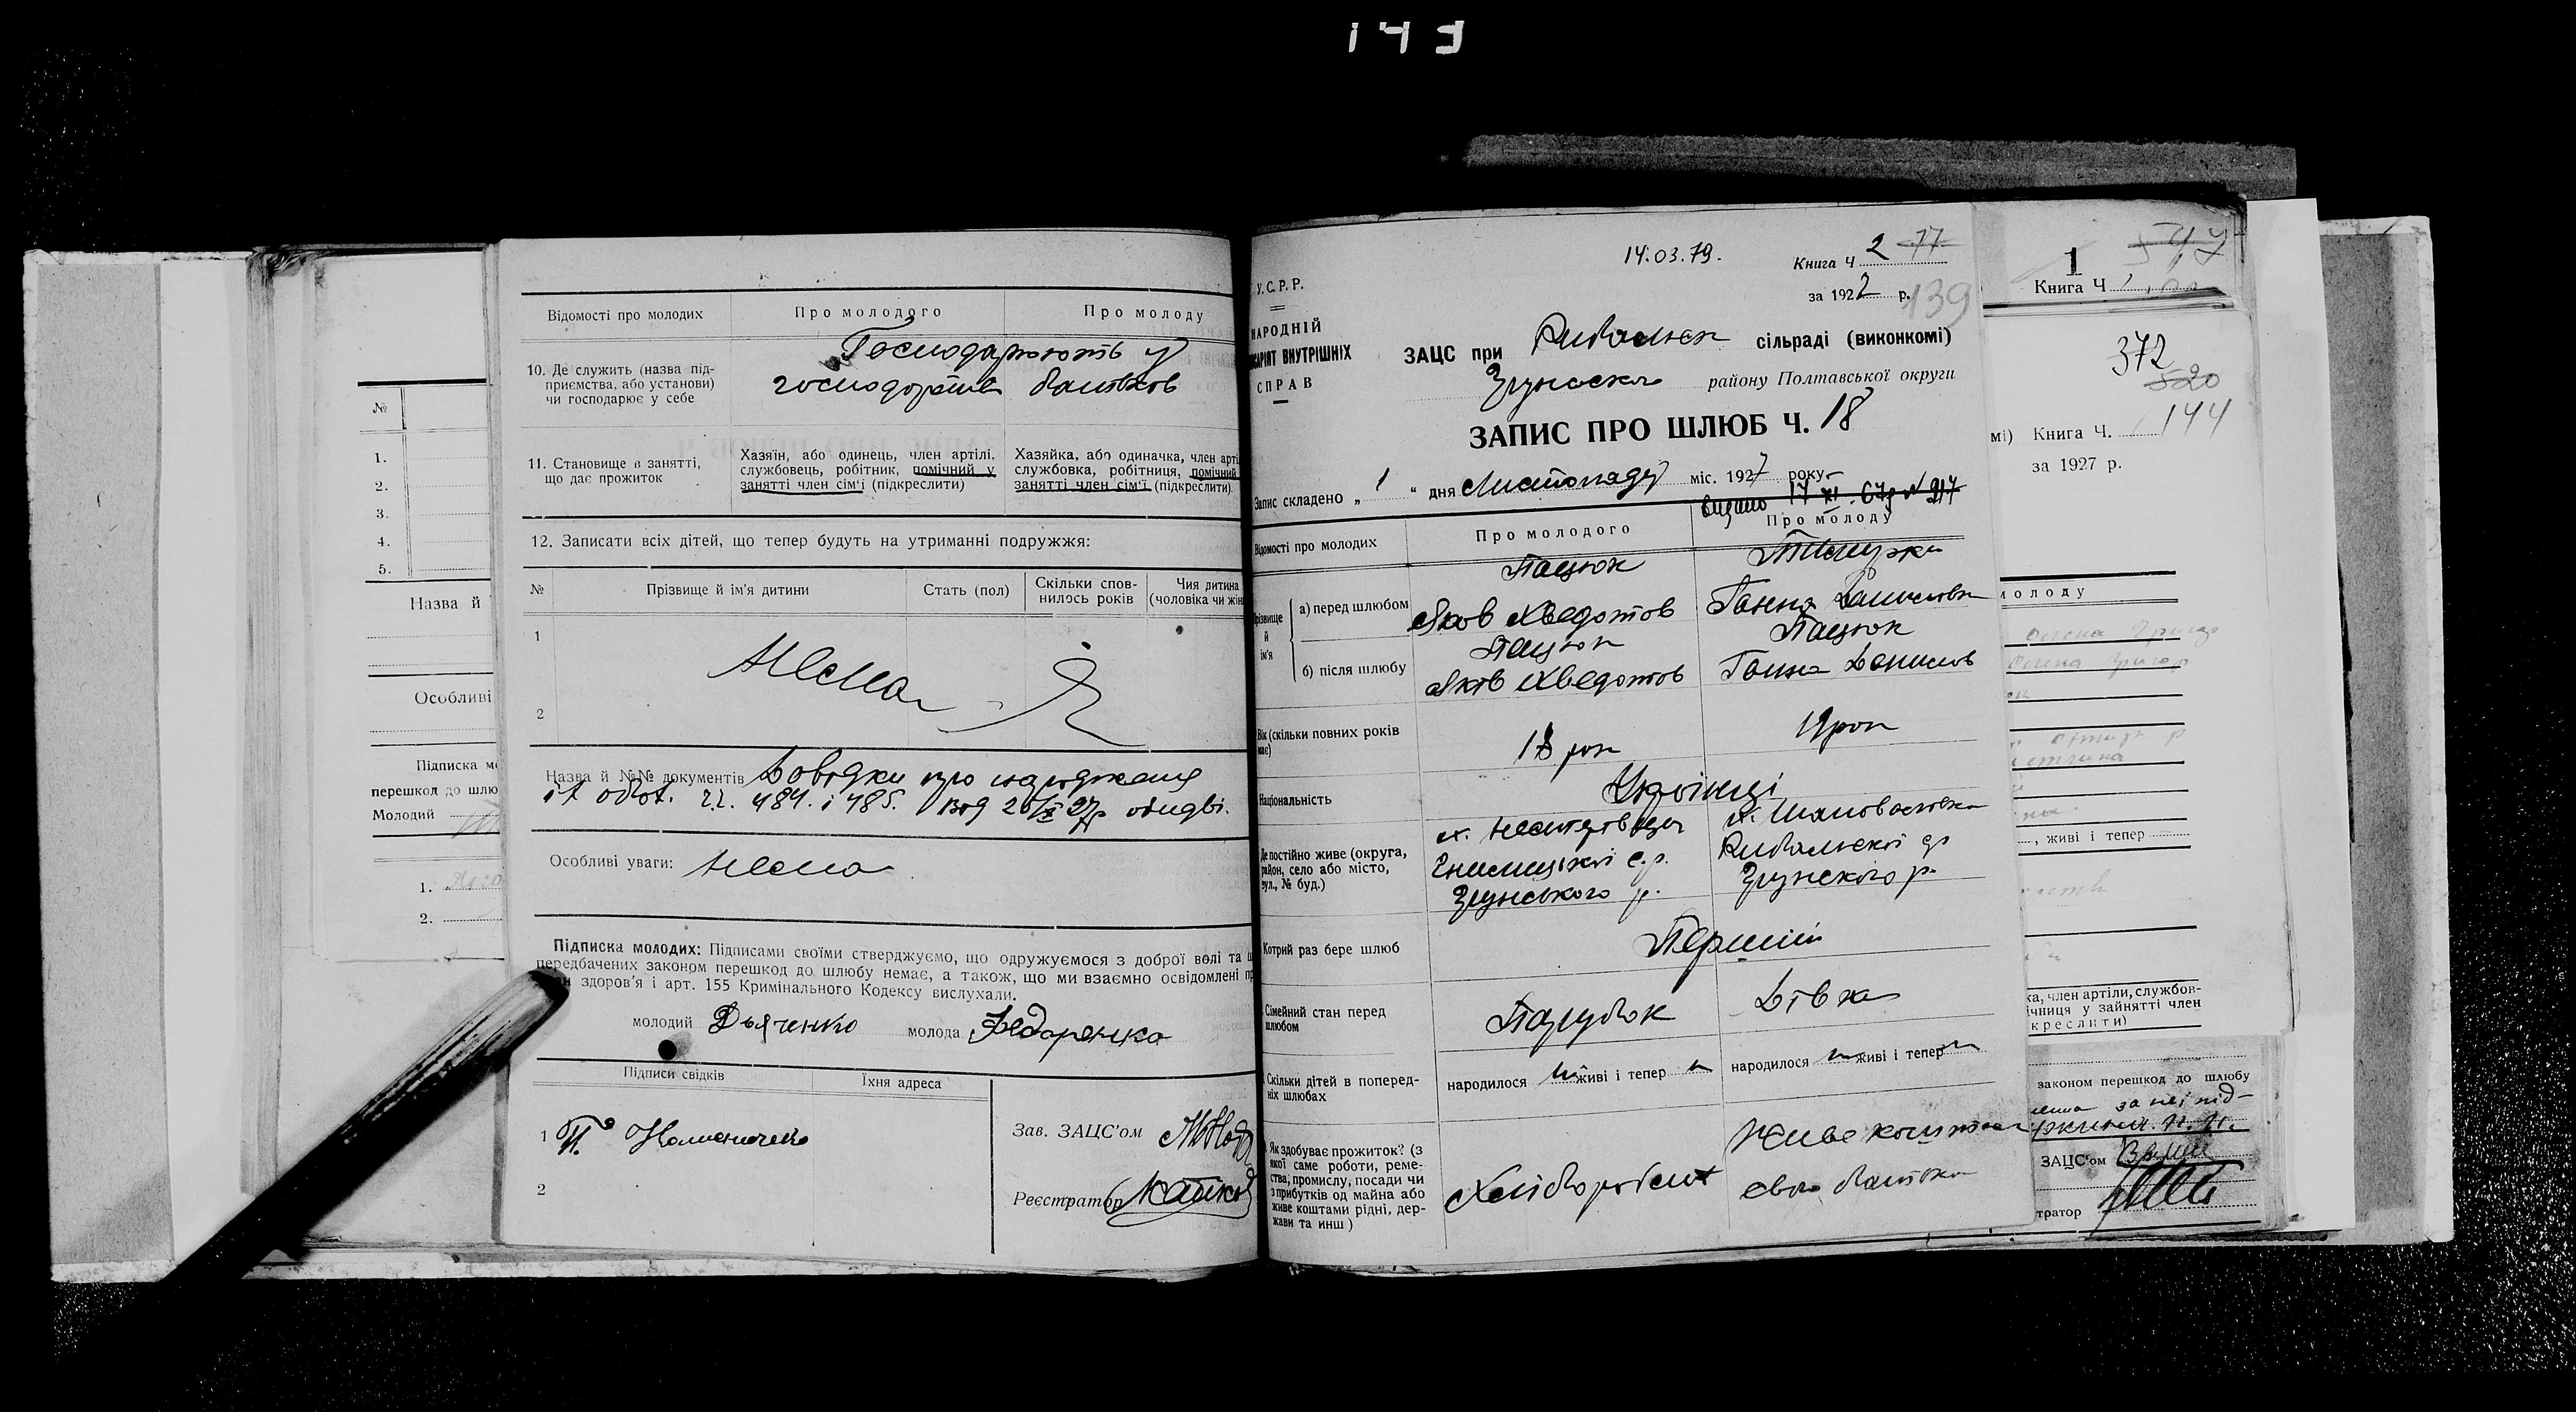 143
№
1.
2.
3.
4.
5.
Назва й
Особливі
Підписка
перешкод до шлю
Молодий
1.
2.
Відомості про молодих
Про молодого
Про молоду
10. Де служить (назва під-
приємства, або установи)
чи господарює у себе
Господарюють у
господарстві батьків
11. Становище в занятті,
що дає прожиток
Хазяїн, або одинець, член артілі,
службовець, робітник, помічний у
занятті член сім'ї (підкреслити)
Хазяйка, або одиначка, член арті
службовка, робітниця, помічний
занятті член сім'ї (підкреслити).
12. Записати всіх дітей, що тепер будуть на утриманні подружжя:
№
Прізвище й ім'я дитини
Стать (пол)
Скільки спов-
нилось років
Чия дитина
(чоловіка чи жін
1
Нема
2
Назва й №№ документів Довідки про
484. і 485. від обидві.
Особливі уваги: Нема
Підписка молодих: Підписами своїми стверджуємо, що одружуємося з доброї волі та щ
передбачених законом перешкод до шлюбу немає, а також, що ми взаємно освідомлені пр
здоров'я і арт. 155 Кримінального Кодексу вислухали.
молодий Дьяченко молода Федоренко
Підписи свідків
Їхня адреса
1
2
Зав. ЗАЦС'ом
Реєстратор
14.03.79.
Книга Ч 2 77
за 1922 р.
139
У.С.Р.Р.
НАРОДНІЙ
САРІЯТ ВНУТРІШНІХ
СПРАВ
ЗАЦС при Рибальск сільраді (виконкомі)
Згуноско району Полтавської округи
ЗАПИС ПРО ШЛЮБ Ч. 18
Запис складено „ 1 “ дня Листопаду міс. 1927 року
видано 17 XI 67р № 917
Відомості про молодих
Про молодого
Про молоду
різвище
й
ім'я
а) перед шлюбом
Пацюк
Яков Хведотов
Ганна
б) після шлюбу
Пацюк
Яків Хведотов
Пацюк
Ганна Данилов
Вік (скільки повних років
має)
18 рок
19 рок
Національність
Українці
Де постійно живе (округа,
район, село або місто,
вул., № буд.)
Згунського р.
Рибальскої
Згунского р.
Котрий раз бере шлюб
Перший
Сімейний стан перед
шлюбом
Парубок
Дівка
Скільки дітей в поперед-
ніх шлюбах
народилося живі і тепер
народилося живі і тепер
Як здобуває прожиток? (з
якої саме роботи, реме-
ства, промислу, посади чи
з прибутків од майна або
живе коштами рідні, дер-
жави та инш)
Хліборобст
Живе коштом
свого батька
1 547
Книга Ч
372
520
144
мі) Книга Ч.
за 1927 р.
молоду
, живі і тепер
ка, член артіли, службов-
ічниця у зайнятті член
креслити)
законом перешкод до шлюбу
за неї під-
ЗАЦС'ом
тратор